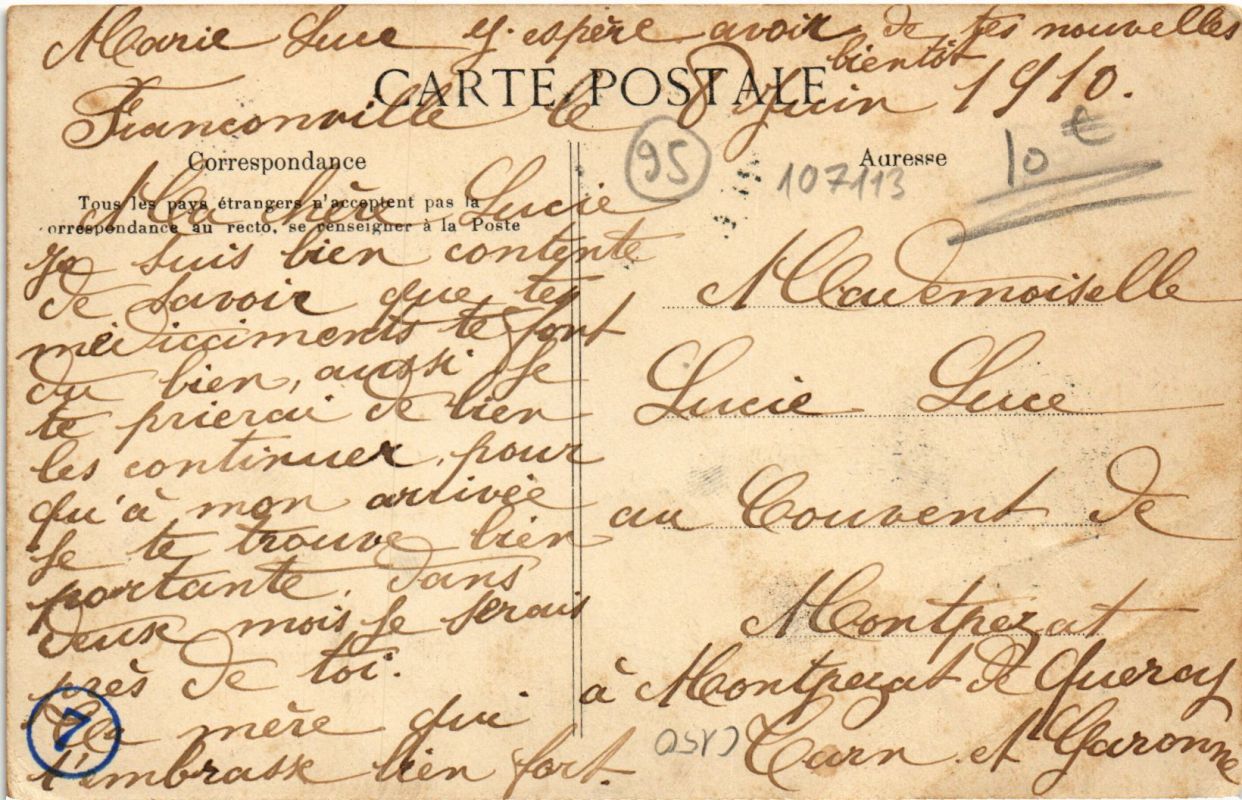 Marie Luce j'espère avoir de tes nouvelles
bientôt
CARTE POSTALE
Franconville le 8 Juin 1910.
95
107113
10 €
Correspondance
Adresse
Tous les pays étrangers n'acceptent pas la
orrespondance au recto, se renseigner à la Poste
Ma chère Lucie
Je suis bien contente
de savoir que tes
médicciments te font
du bien, aussi je
te prierai de bien
les continuer, pour
qu'à mon arrivée
je te trouve bien
portante, dans
deux mois je serais
près de toi.
Ta mère qui
t'embrasse bien fort.
7
Mademoiselle
Lucie Luce
au Couvent de
Montpezat
à Montpezat de Quercy
Tarn et Garonne